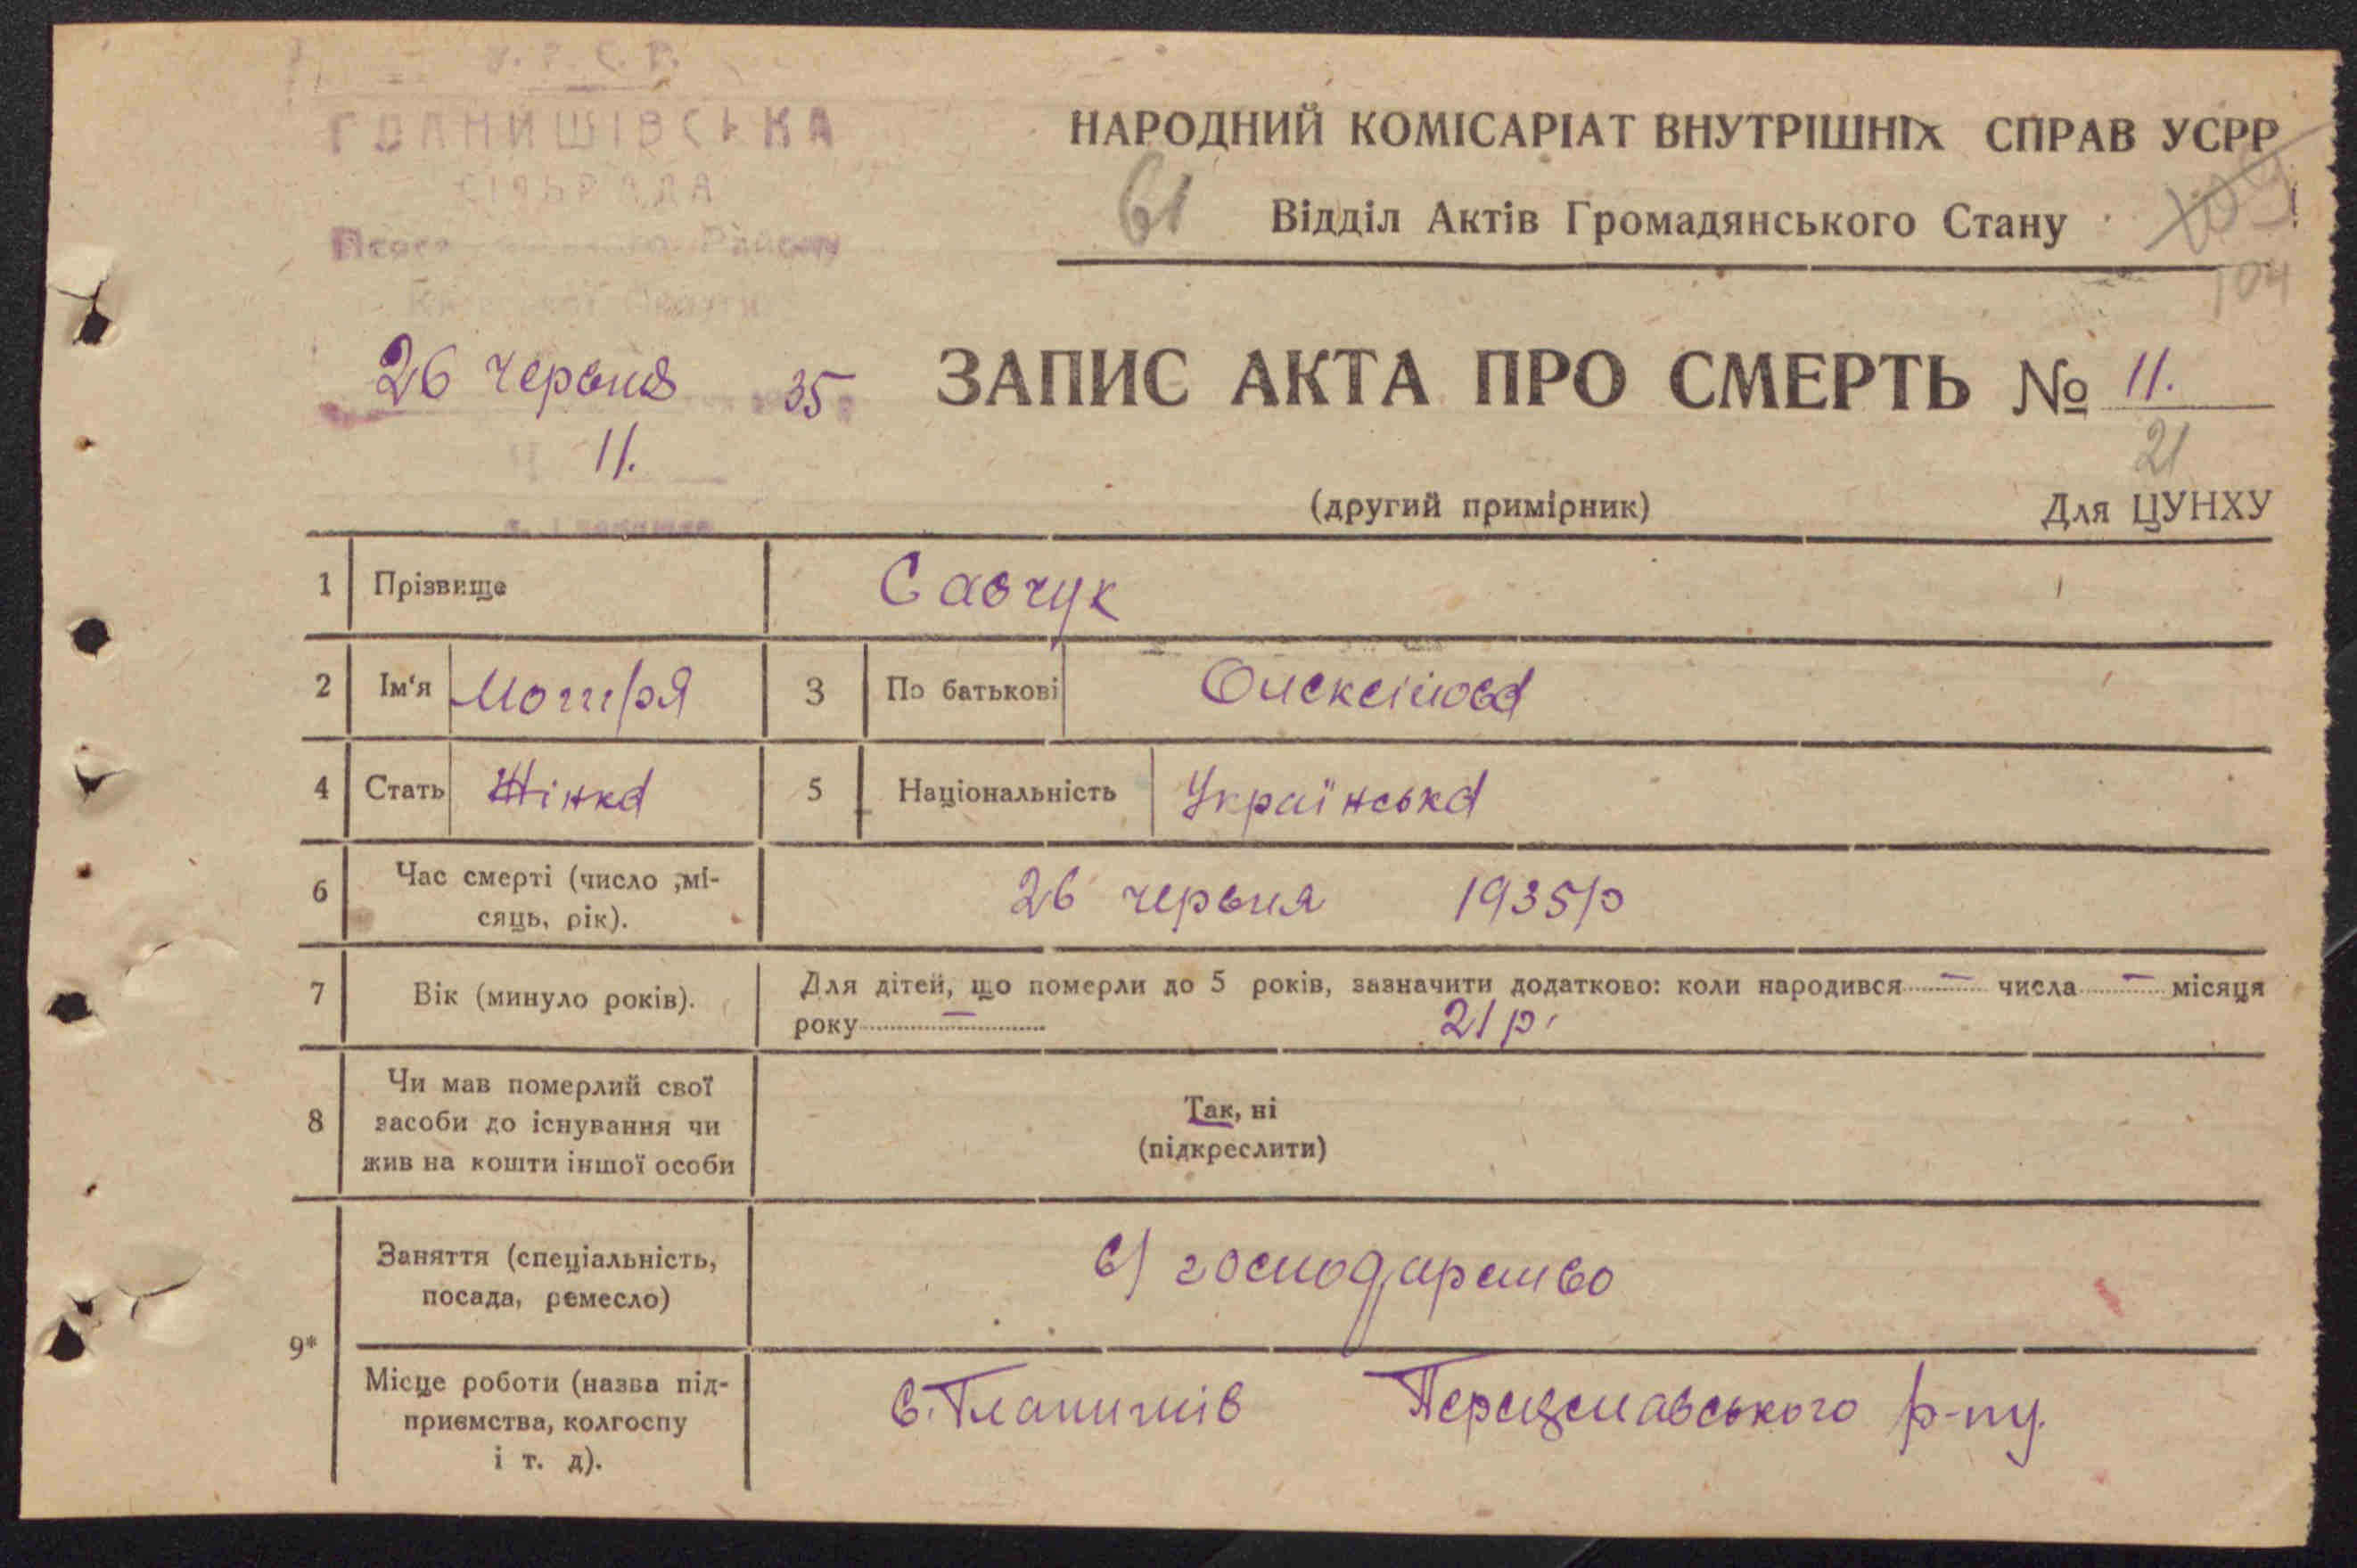 У.Р.С.Р.
ГЛАНИШІВСЬКА
СІЛЬРАДА
Району
26 червня 35
11.
НАРОДНИЙ КОМІСАРІАТ ВНУТРІШНІХ СПРАВ УСРР
61 Відділ Актів Громадянського Стану
104
ЗАПИС АКТА ПРО СМЕРТЬ № 11.
21
(другий примірник) Для ЦУНХУ
1 Прізвище Савчук
2 Ім'я Мотря 3 По батькові Олексіївна
4 Стать Жінка 5 Національність Українська
6 Час смерті (число ,мі-
сяць, рік). 26 червня 1935р
7 Вік (минуло років). Для дітей, що померли до 5 років, зазначити додатково: коли народився — числа — місяця
року — 21 р.
8 Чи мав померлий свої
засоби до існування чи
жив на кошти іншої особи
Так, ні
(підкреслити)
9* Заняття (спеціальність,
посада, ремесло)
С/господарство
Місце роботи (назва під-
приємства, колгоспу
і т. д).
с. Гланишів Переяславського р-ну.